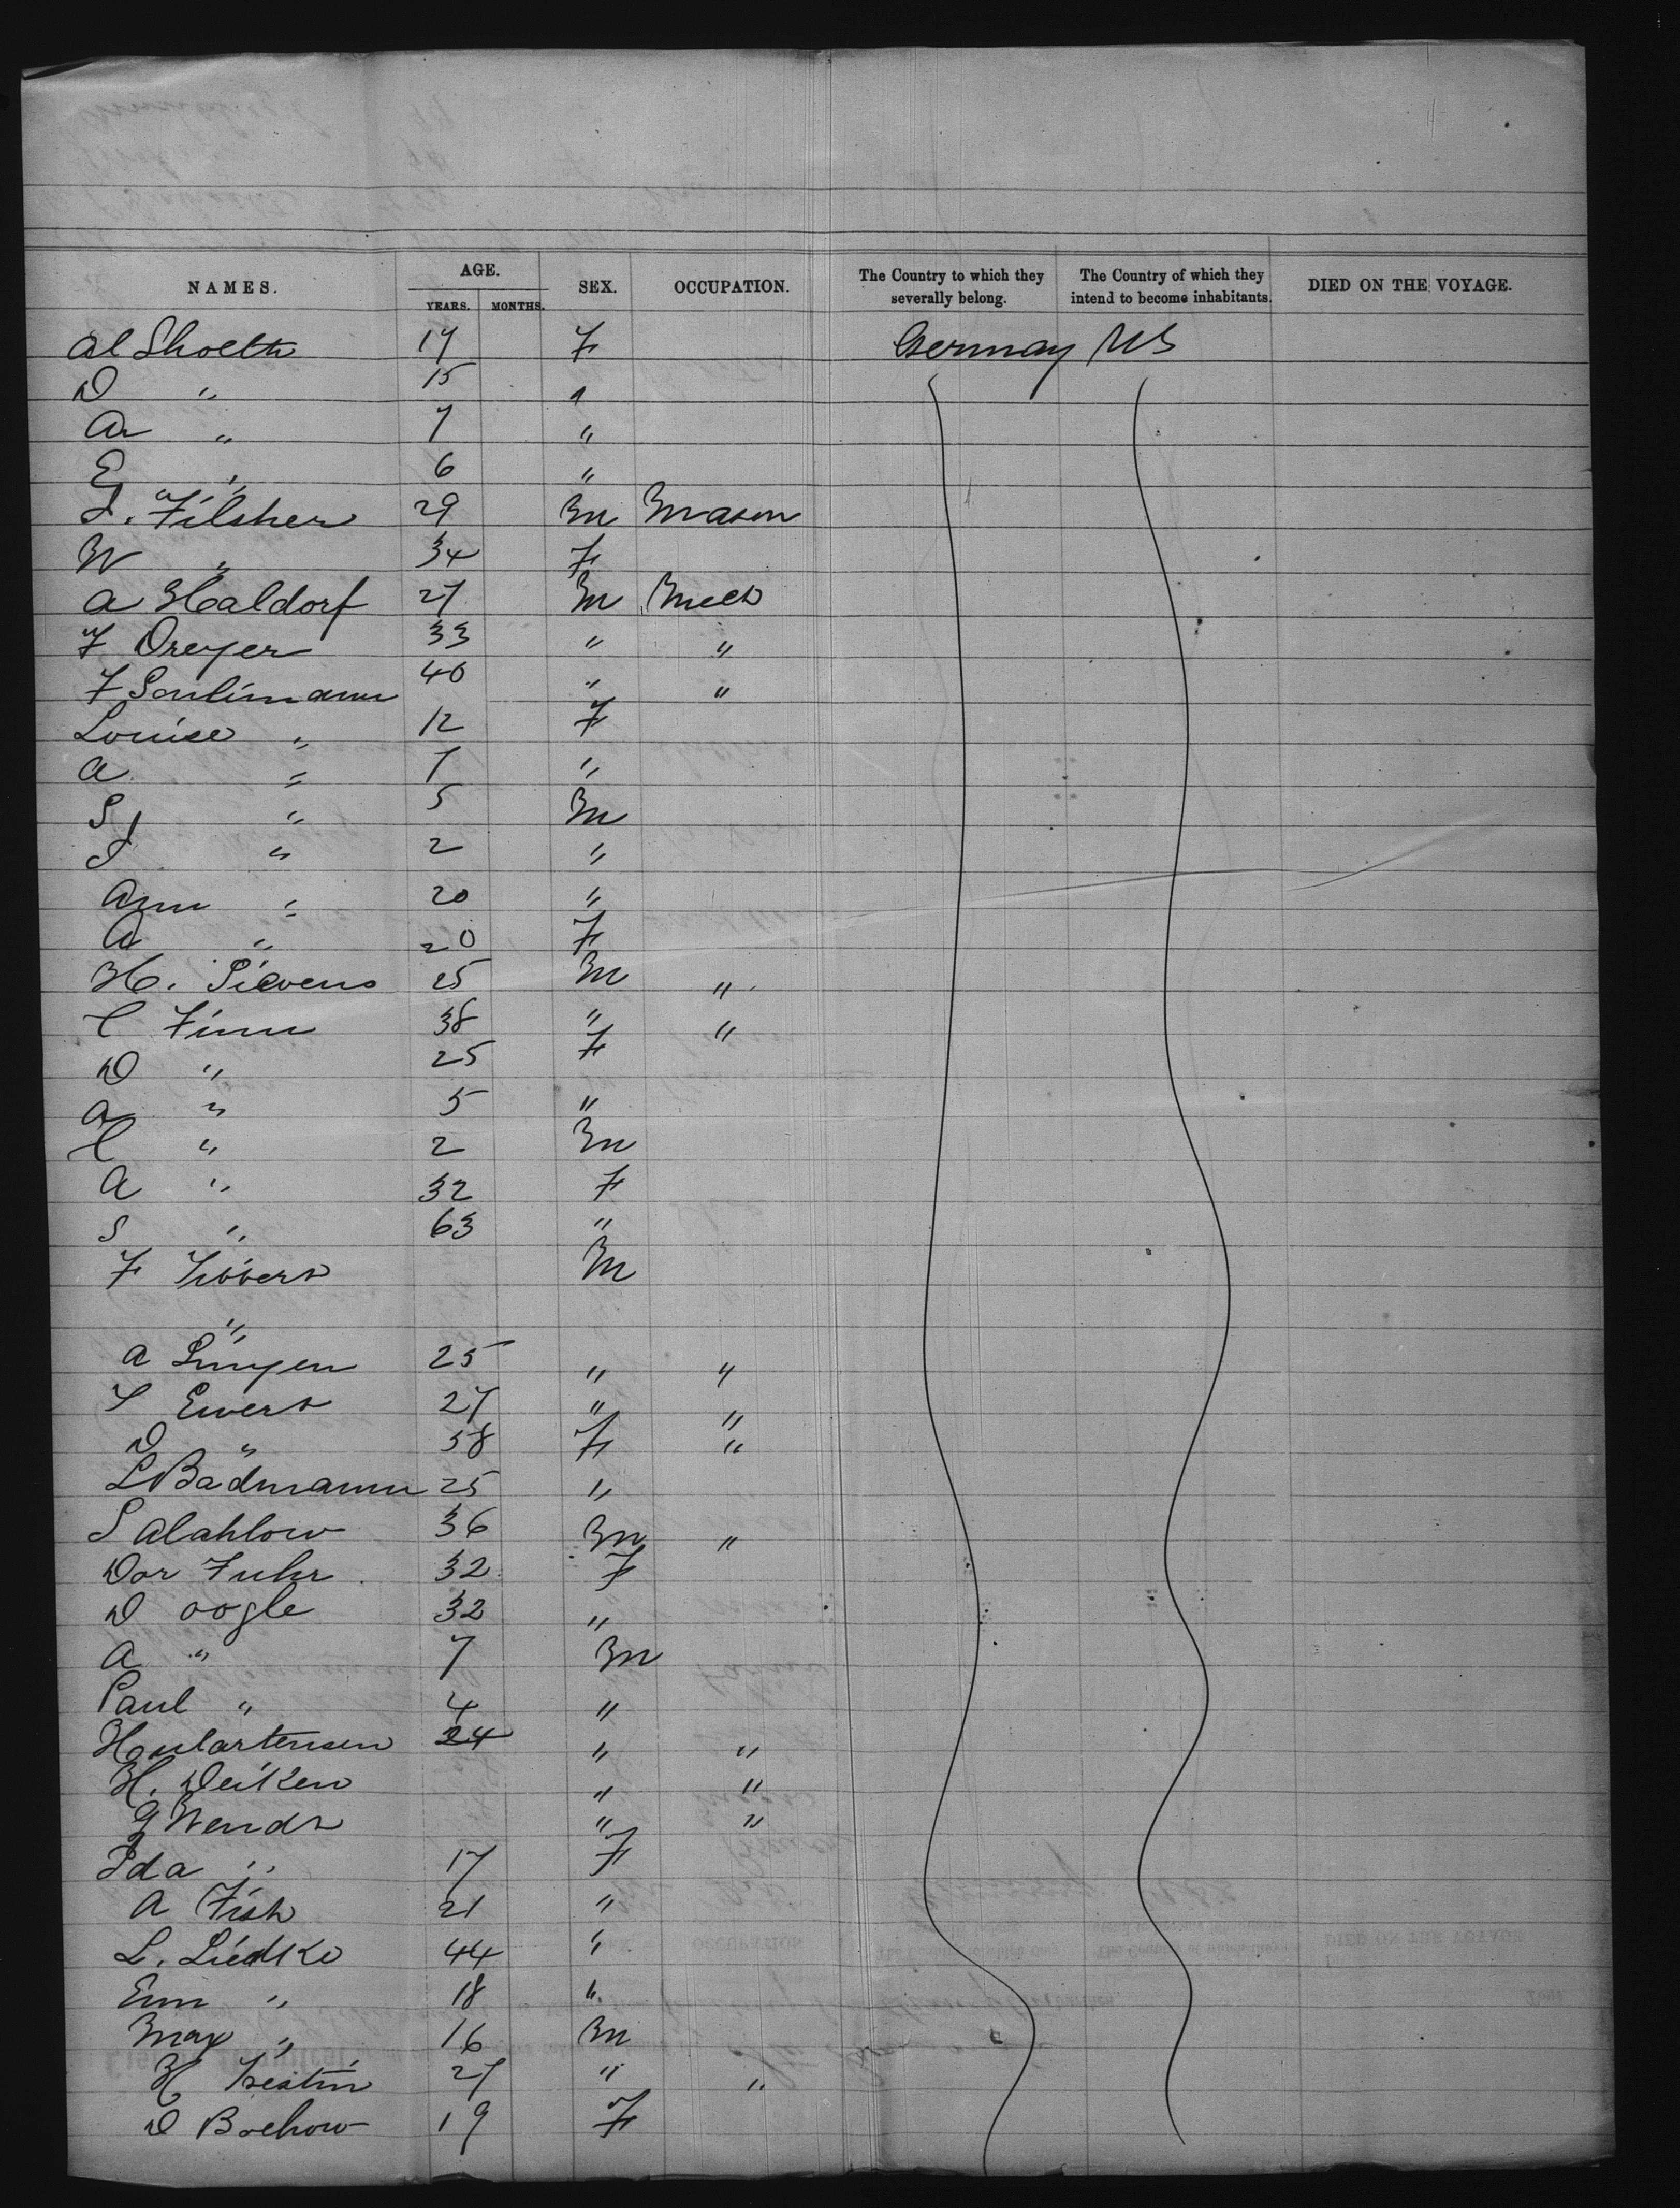 NAMES. AGE. YEARS. MONTHS. SEX. OCCUPATION. The Country to which they severally belong. The Country of which they intend to become inhabitants. DIED ON THE VOYAGE.
Al Sholth 17 F Germay US
D " 15 "
An " 7 "
E " 6 "
J. Filsher 29 M Mason
W " 34 F
A Haldorf 27 M Mech
F Dreyer 33 " "
F Senlimann 40 " "
Louise " 12 F
A " 7 "
S " 5 M
J " 2 "
Ann " 20 "
A " 20 F
H. Sievens 25 M "
C Finn 38 " "
D " 25 F
A " 5 "
C " 2 M
A " 32 F
S " 63 "
F M
"
A 25 " "
Ewers 27 " "
D " 58 F "
L Badmann 25 "
S Alahlow 36 M "
Dor Fuhr 32 F
D oogle 32 "
A " 7 M
Paul " 4 "
H Martensen 24 " "
H. Deiken " "
G Wends " "
Ida " 17 F
A Fish 21 "
L. Liedke 44 "
Em " 18 "
Max " 16 M
H 27 " "
D Bochow 19 F